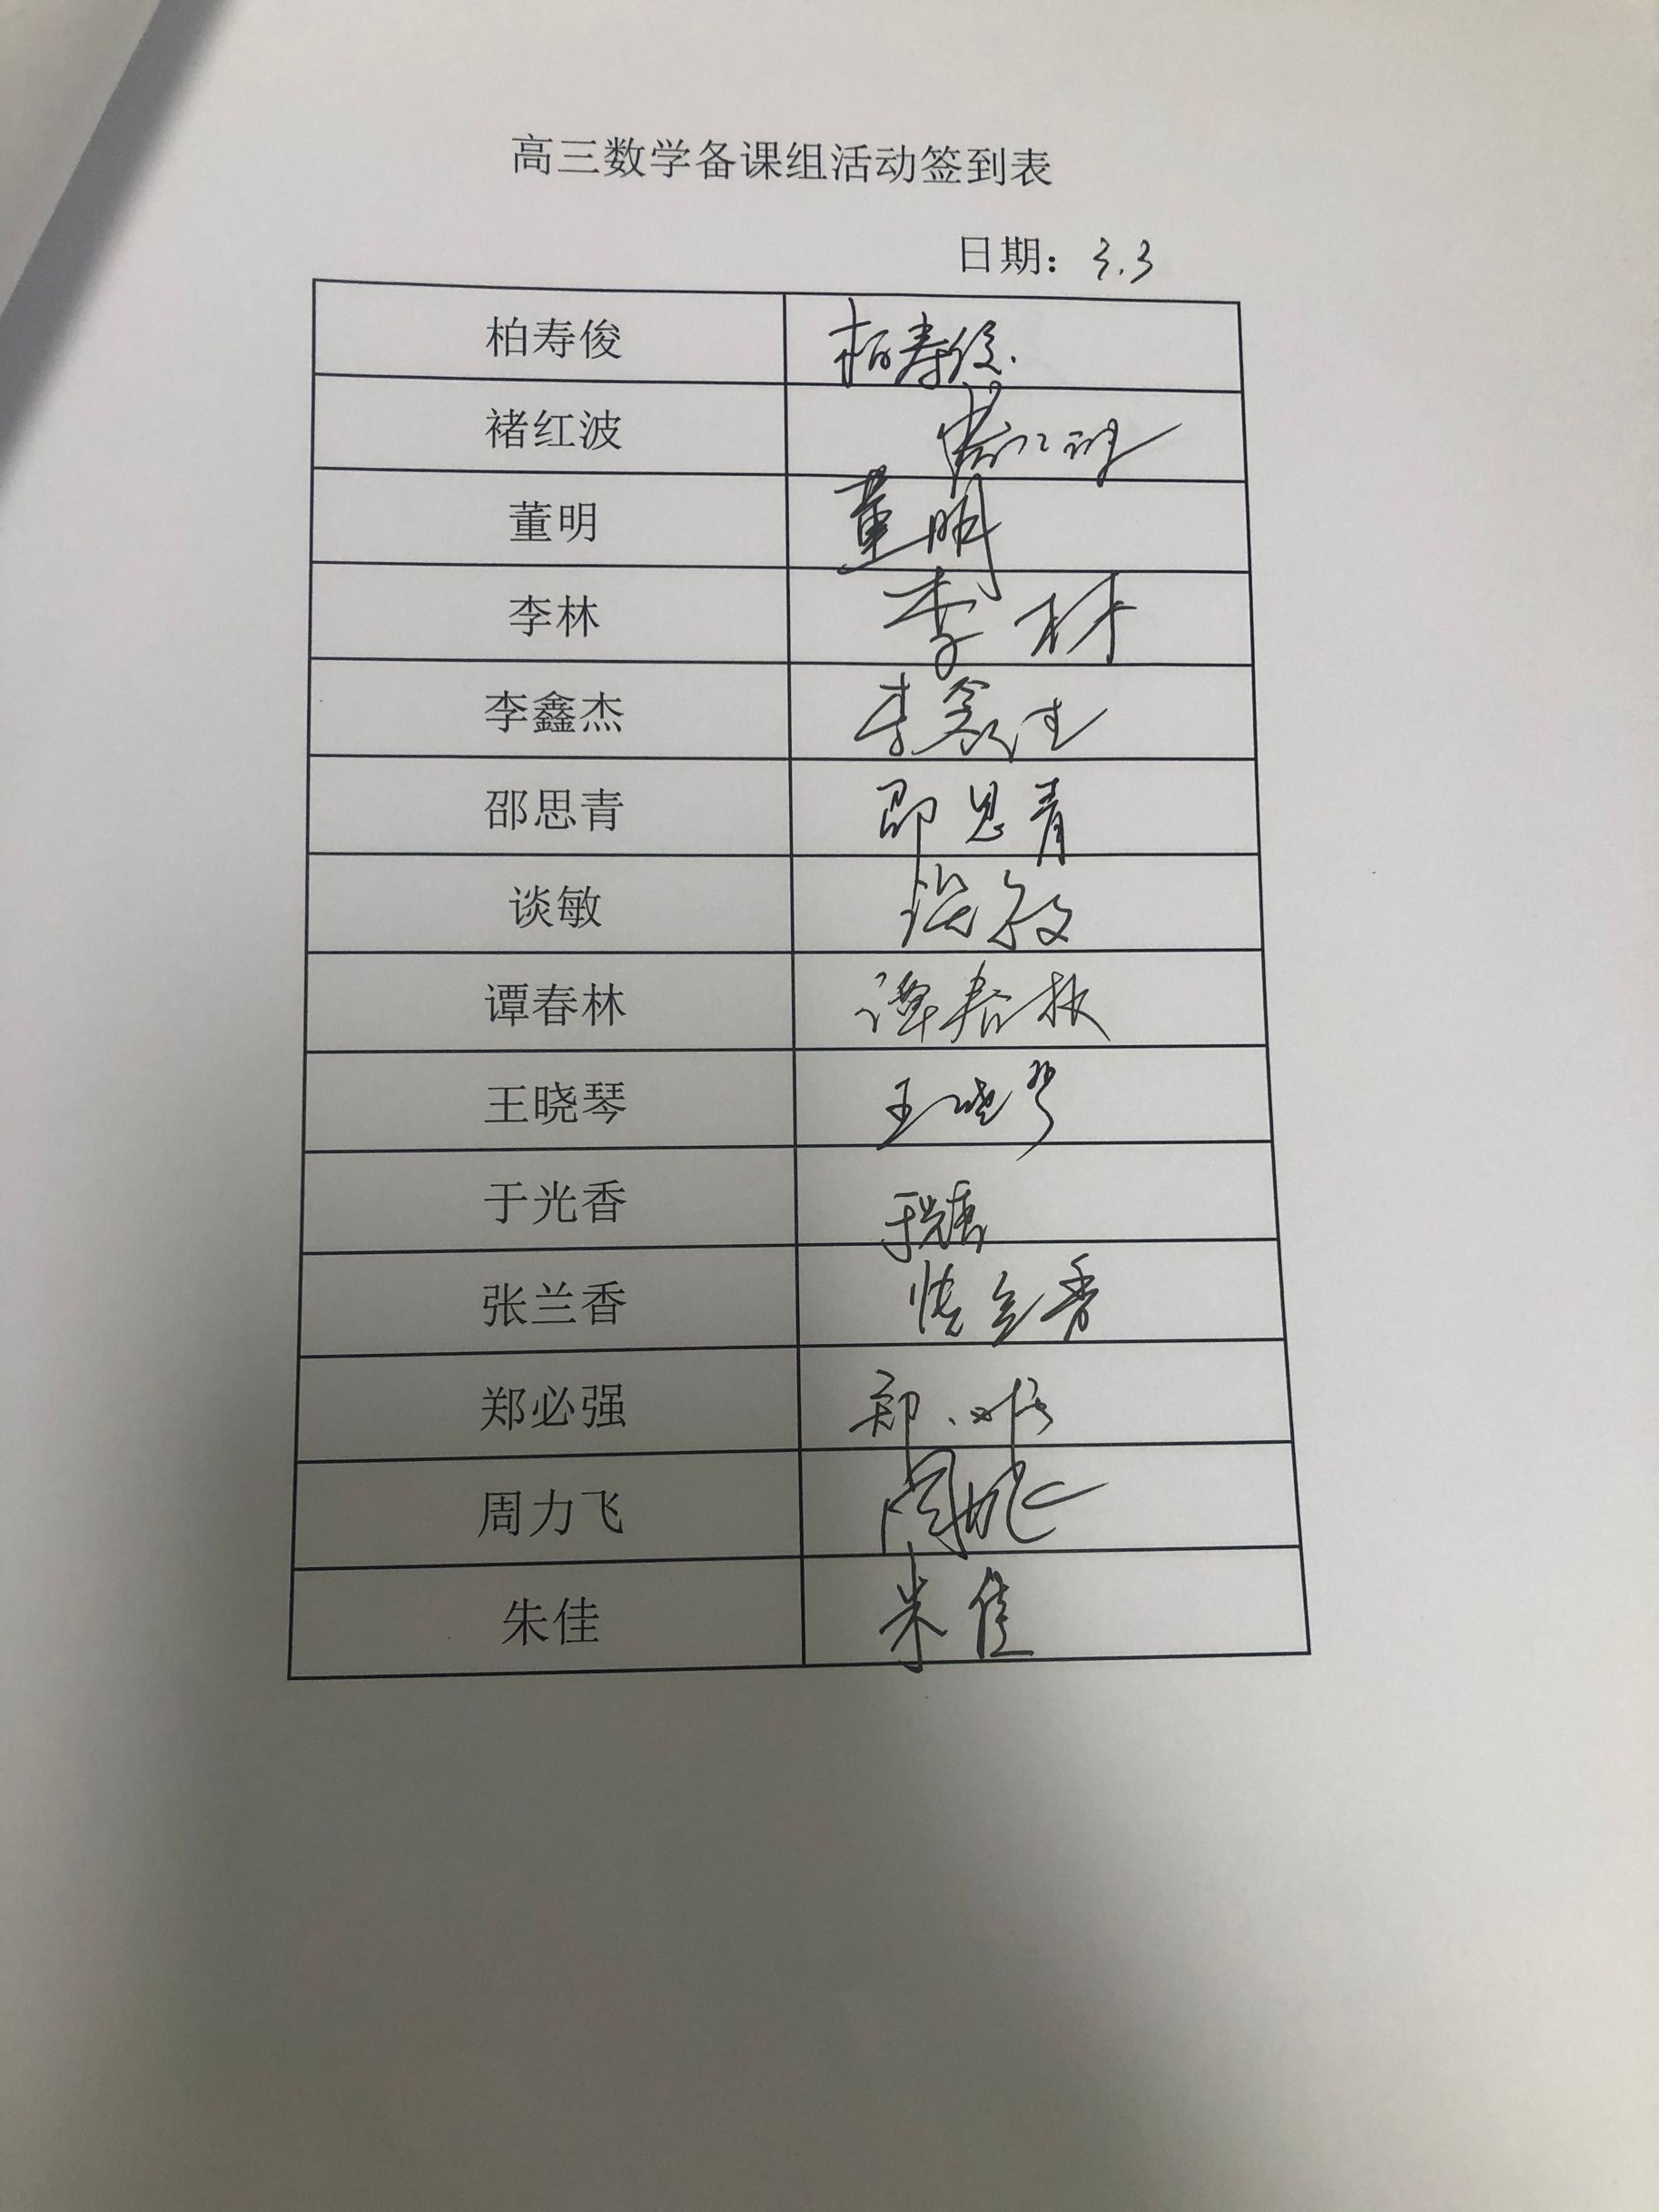 高三数学备课组活动签到表
日期：3.3
柏寿俊 柏寿俊.
褚红波 褚红波
董明 董明
李林 李林
李鑫杰 李鑫杰
邵思青 邵思青
谈敏 谈敏
谭春林 谭春林
王晓琴 王晓琴
于光香 于光香
张兰香 张兰香
郑必强 郑必强
周力飞 周力飞
朱佳 朱佳